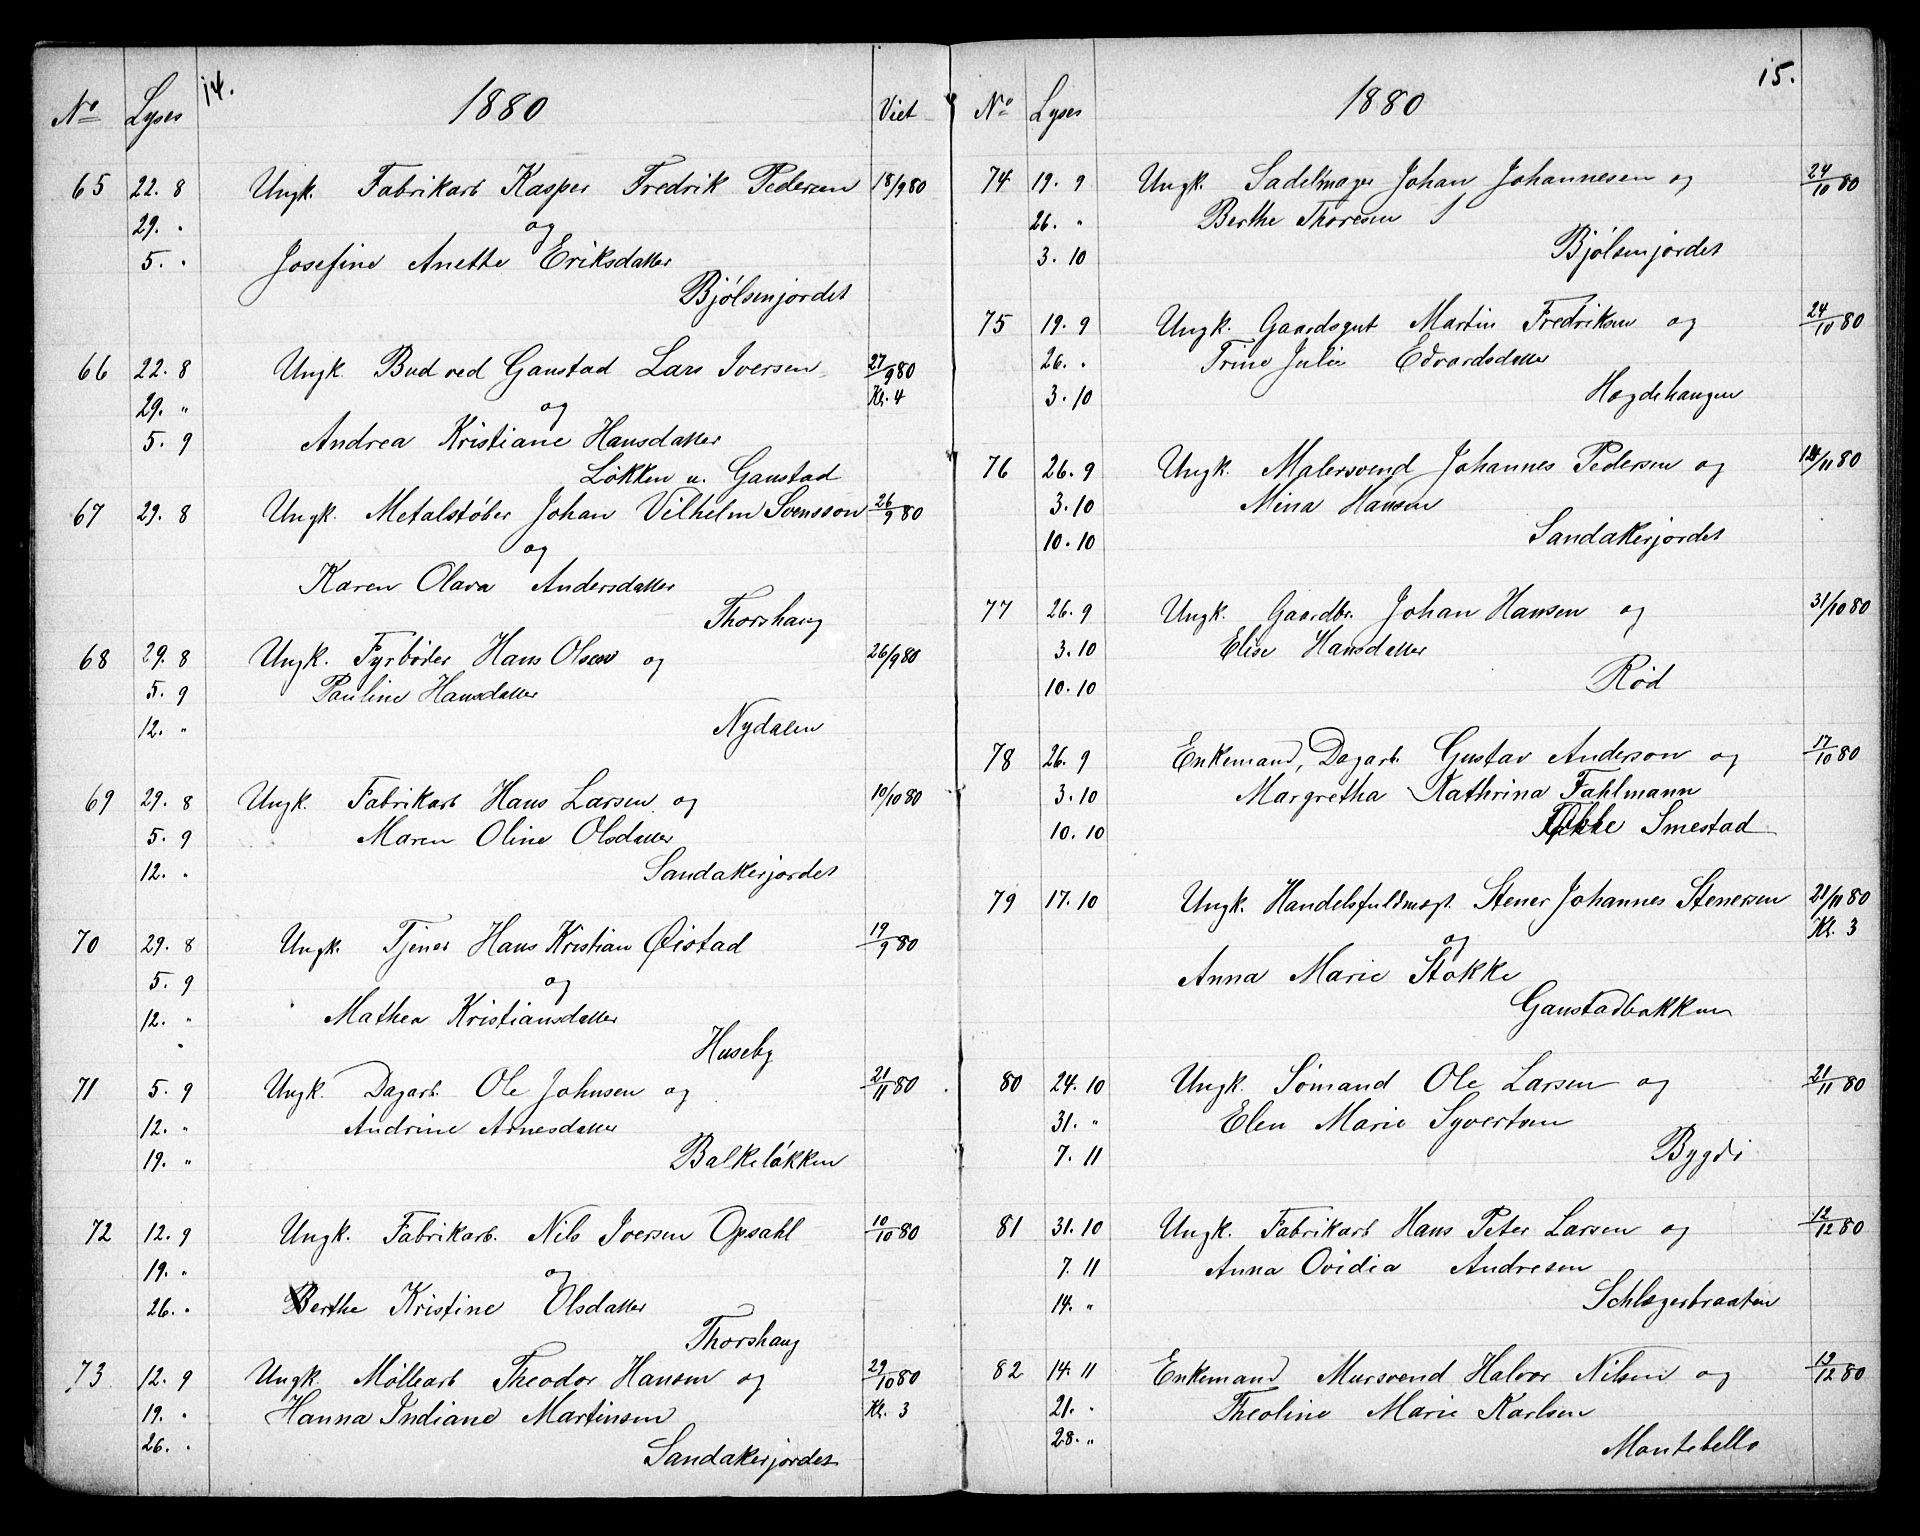 14.
No Lyses 1880 Viet
65 22. 8 Ungk. Fabrikarb Kasper Fredrik Pedersen 18/9 80
29. " og
5. " Josefine Anette Eriksdatter
Bjølsenjordet
66 22. 8 Ungk. Bud ved Gaustad Lars Iversen 27/9 80
29. " og Kl. 4
5. 9 Andrea Kristiane Hansdatter
Løkken u. Gaustad
67 29. 8 Ungk. Metalstøber Johan Vilhelm Svensson 26/9 80
og
Karen Olava Andersdatter
Thorshaug
68 29. 8 Ungk. Fyrbøder Hans Olsen og 26/9 80
5. 9 Pauline Hansdatter
12. " Nydalen
69 29. 8 Ungk. Fabrikarb Hans Larsen og 10/10 80
5. 9 Maren Oline Olsdatter
12. " Sandakerjordet
70 29. 8 Ungk. Tjener Hans Kristian Øistad 19/9 80
5. 9 og
12. " Mathea Kristiansdatter
Huseby
71 5. 9 Ungk. Dagarb. Ole Johnsen og 21/11 80
12. " Andrine Arnesdatter
19. " Balkeløkken
72 12. 9 Ungk. Fabrikarb. Nils Iversen Opsahl 10/10 80
19. " og
26. " Berthe Kristine Olsdatter
Thorshaug
73 12. 9 Ungk. Møllearb Theodor Hansen og 29/10 80
19. " Hanna Indiane Martinsen Kl. 3
26. " Sandakerjordet
15.
No Lyses 1880
74 19. 9 Ungk. Sadelmager Johan Johannesen og 24/10 80
26. " Berthe Thoresen
3. 10 Bjølsenjordet
75 19. 9 Ungk. Gaardsgut Martin Fredriksen og 24/10 80
26. " Trine Julie Edvardsdatter
3. 10 Hægdehaugen
76 26. 9 Ungk. Malersvend Johannes Pedersen og /11 80
3. 10 Mina Hansen
10. 10 Sandakerjordet
77 26. 9 Ungk. Gaardbr. Johan Hansen og 31/10 80
3. 10 Elise Hansdatter
10. 10 Rød
78 26. 9 Enkemand, Dagarb. Gustav Anderson og 17/10 80
3. 10 Margretha Kathrina Fahlmann
10. 10 Smestad
79 17. 10 Ungk. Handelsfuldmægt. Stener Johannes Stenersen 21/11 80
og Kl. 3
Anna Marie Stokke
Gaustadbakken
80 24. 10 Ungk. Sømand Ole Larsen og 21/11 80
31. " Elen Marie Syvertsen
7. 11 Bygdø
81 31. 10 Ungk. Fabrikarb Hans Peter Larsen og 12/12 80
7. 11 Anna Ovidia Andresen
14. " Schlægerbraaten
82 14. 11 Enkemand Mursvend Halvor Nilsen og 19/12 80
21. " Theoline Marie Karlsen
28. " Montebello